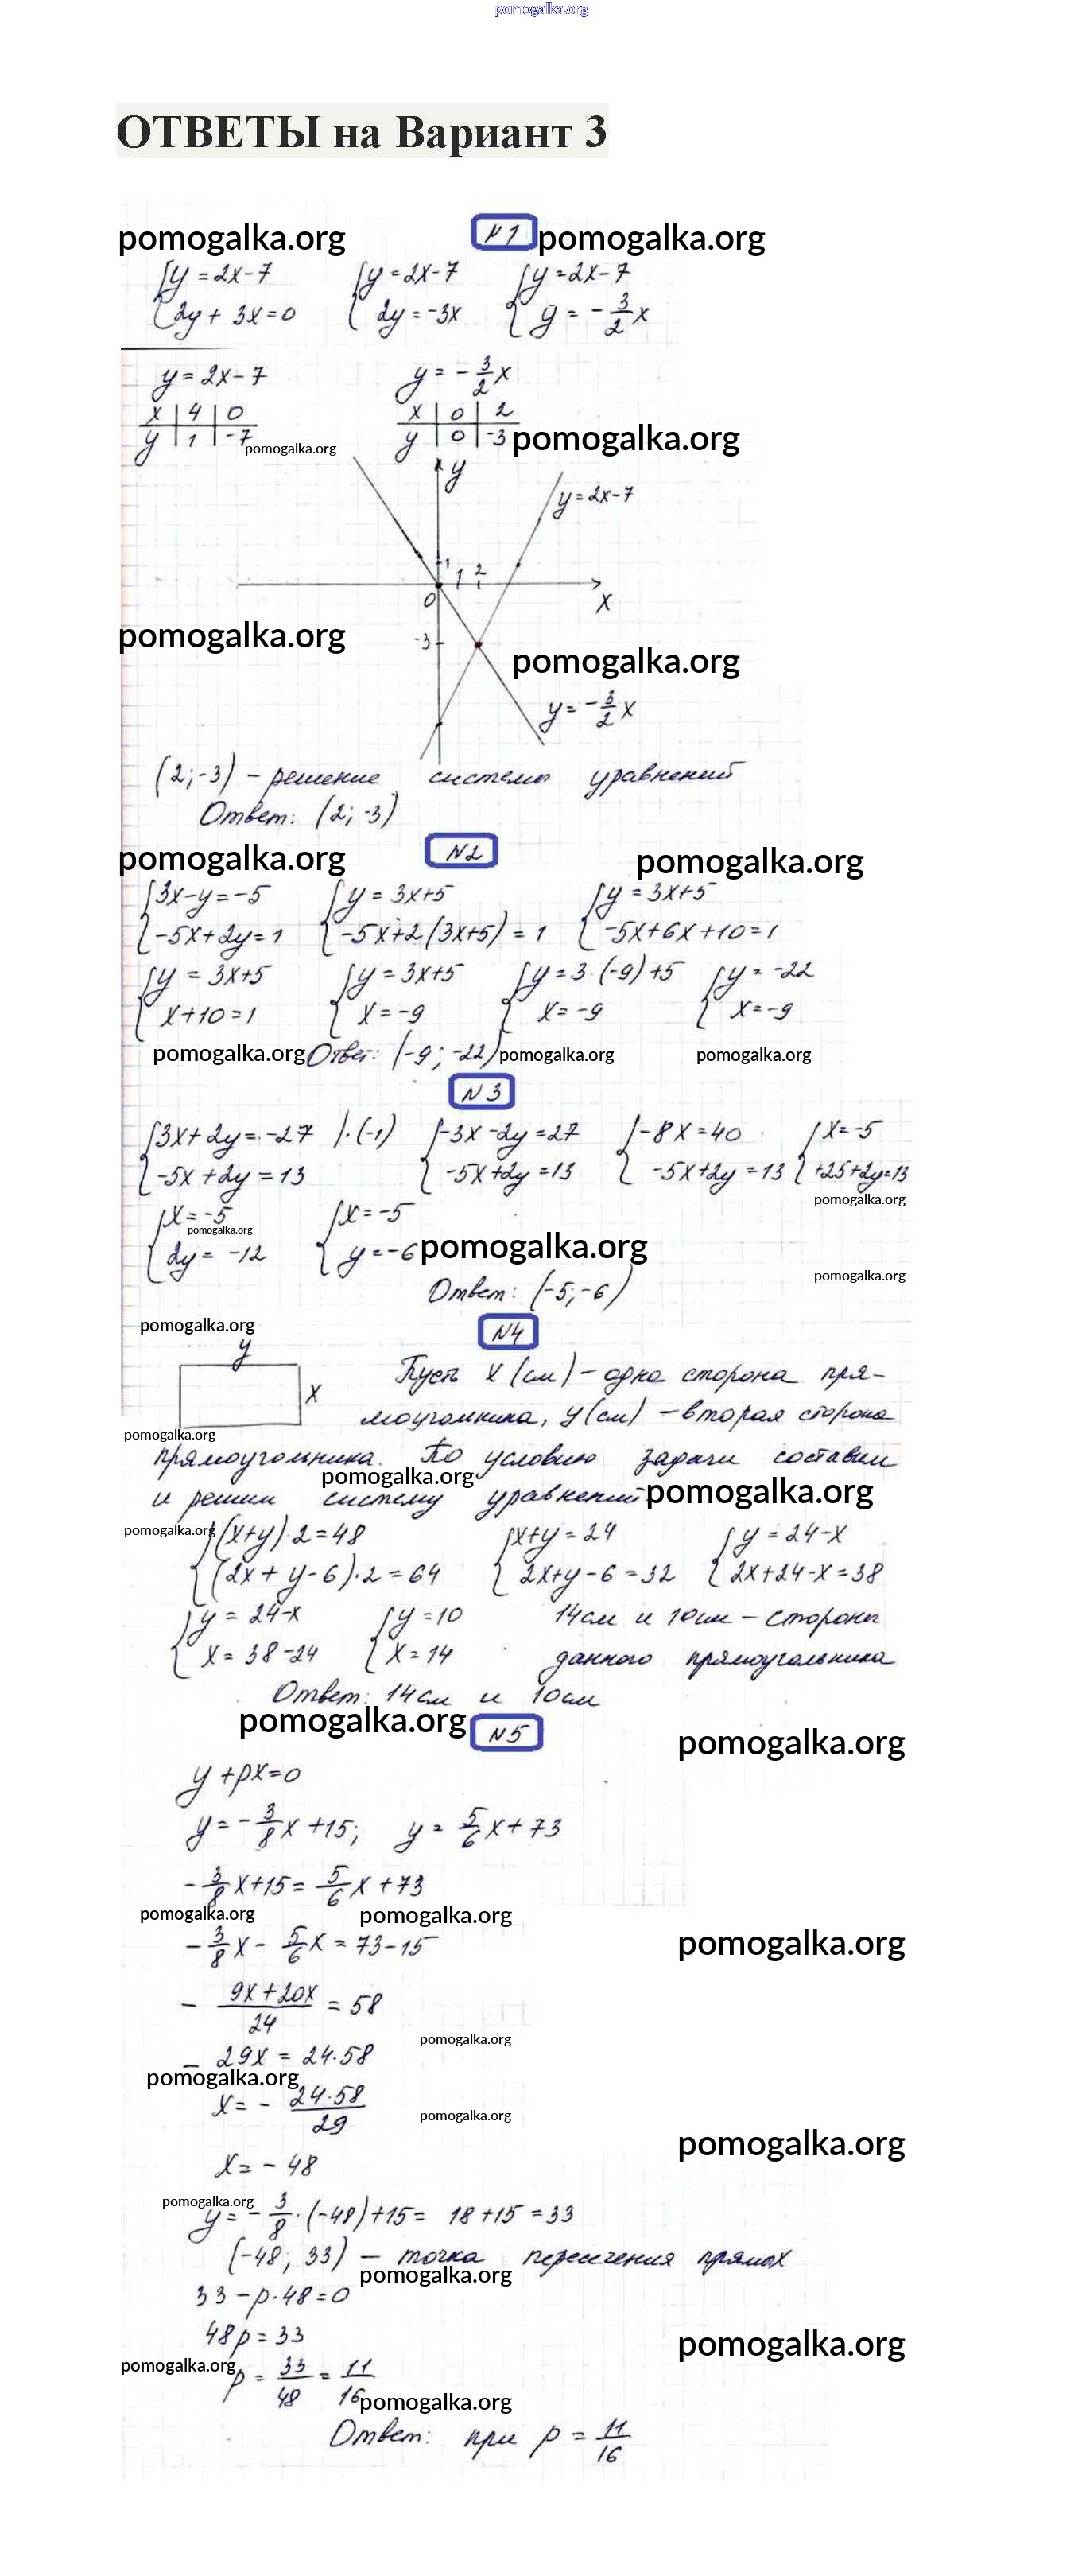 pomogalka.org
ОТВЕТЫ на Вариант 3
pomogalka.org №1 pomogalka.org
{y = 2x-7 {y = 2x-7 {y = 2x-7
{2y + 3x = 0 {2y = -3x {y = -3/2 x
y = 2x-7 y = -3/2 x
x | 4 | 0 x | 0 | 2
y | 1 | -7 y | 0 | -3 pomogalka.org
pomogalka.org
y
y = 2x-7
1 1 2
0 x
pomogalka.org -3
pomogalka.org
y = -3/2 x
(2; -3) - решение системы уравнений
Ответ: (2; -3)
pomogalka.org №2 pomogalka.org
{3x-y = -5 {y = 3x+5 {y = 3x+5
{-5x+2y = 1 {-5x+2(3x+5) = 1 {-5x+6x+10 = 1
{y = 3x+5 {y = 3x+5 {y = 3·(-9)+5 {y = -22
{x+10 = 1 {x = -9 {x = -9 {x = -9
pomogalka.org Ответ: (-9; -22) pomogalka.org pomogalka.org
№3
{3x+2y = -27 |·(-1) {-3x-2y = 27 {-8x = 40 {x = -5
{-5x+2y = 13 {-5x+2y = 13 {-5x+2y = 13 {+25+2y = 13
pomogalka.org
{x = -5 {x = -5
pomogalka.org
{2y = -12 {y = -6 pomogalka.org
pomogalka.org
Ответ: (-5; -6)
pomogalka.org №4
y
x Пусть x (см) - одна сторона пря-
моугольника, y (см) - вторая сторона
pomogalka.org
прямоугольника. По условию задачи составим
pomogalka.org
и решим систему уравнений pomogalka.org
pomogalka.org
{(x+y)·2 = 48 {x+y = 24 {y = 24-x
{(2x+y-6)·2 = 64 {2x+y-6 = 32 {2x+24-x = 38
{y = 24-x {y = 10 14см и 10см - стороны
{x = 38-24 {x = 14 данного прямоугольника
Ответ: 14см и 10см
pomogalka.org №5 pomogalka.org
y + px = 0
y = -3/8 x + 15; y = 5/6 x + 73
-3/8 x + 15 = 5/6 x + 73
pomogalka.org pomogalka.org
-3/8 x - 5/6 x = 73-15 pomogalka.org
- (9x+20x)/24 = 58
pomogalka.org
- 29x = 24·58
pomogalka.org
x = - (24·58)/29
pomogalka.org
pomogalka.org
x = -48
pomogalka.org
y = -3/8·(-48)+15 = 18+15 = 33
(-48; 33) - точка пересечения прямых
pomogalka.org
33 - p·48 = 0
48p = 33 pomogalka.org
pomogalka.org
p = 33/48 = 11/16
pomogalka.org
Ответ: при p = 11/16